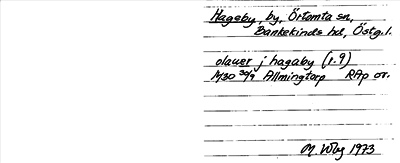 Hageby, by, Örtomta sn,
Bankekinds hd, Östg. l.
olauer j hagaby (r. 9)
M30 30/9 Allmingtorp RAp or.
M. Wbg 1973